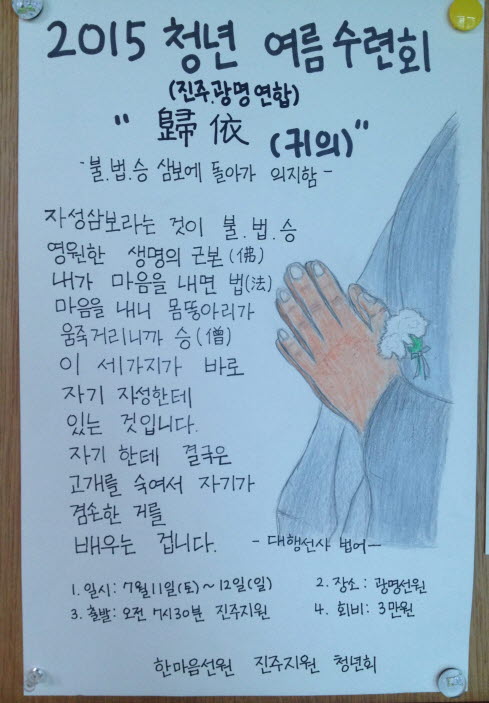 2015 청년 여름 수련회
(진주.광명 연합)
“ 歸依 (귀의)”
- 불.법.승 삼보에 돌아가 의지함 -
자성삼보라는 것이 불.법.승
영원한 생명의 근본(佛)
내가 마음을 내면 법(法)
마음을 내니 몸뚱아리가
움죽거리니까 승(僧)
이 세가지가 바로
자기 자성한테
있는 것입니다.
자기 한테 결국은
고개를 숙여서 자기가
겸손한 거를
배우는 겁니다. - 대행선사 법어 -
1. 일시: 7월11일(토)~12일(일) 2. 장소: 광명선원
3. 출발: 오전 7시30분 진주지원 4. 회비: 3만원
한마음선원 진주지원 청년회